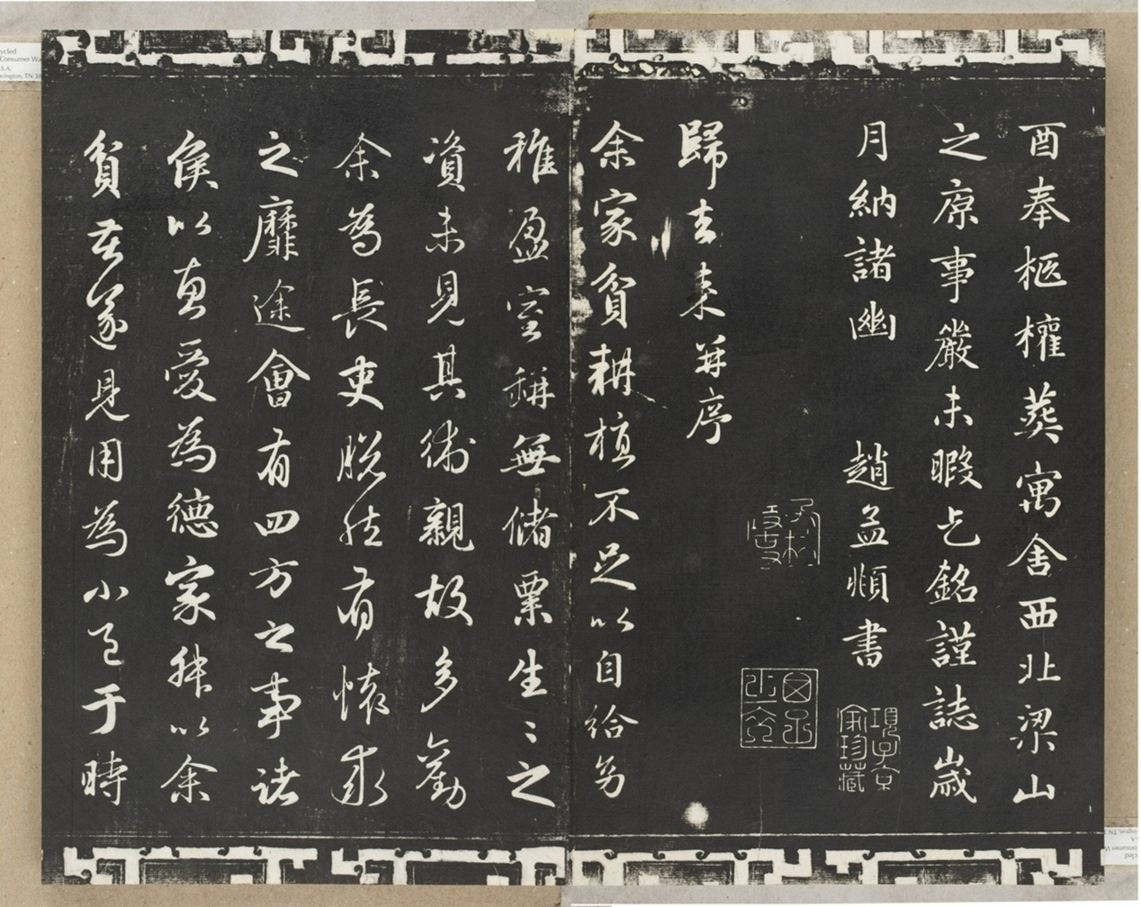 酉奉柩權葬寓舍西北梁山
之原事嚴未暇乞銘謹誌歲
月納諸幽 趙孟頫書
項子京家珍藏
歸去來并序
余家貧耕植不足以自給幼
稚盈室缾無儲粟生〻之
資未見其術親故多勸
余為長吏脫然有懷求
之靡途會有四方之事諸
侯以惠愛為德家叔以余
貧苦遂見用為小邑于時